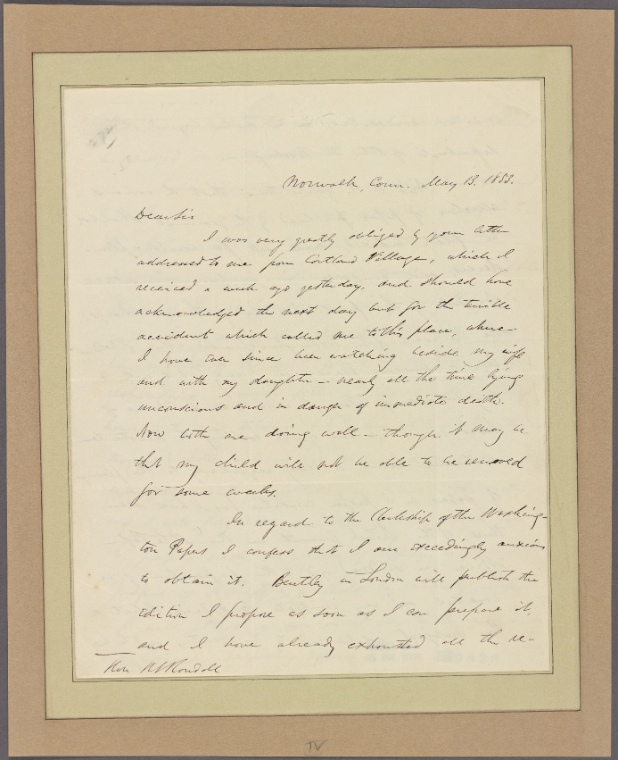 Norwalk, Conn. May 13. 1853.
Dear Sir
I was very greatly obliged by your letter
addressed to me from Cortland Village, which I
received a week ago yesterday, and should have
acknowledged the next day but for the terrible
accident which called me to this place, where
I have ever since been watching beside my wife
and with my daughter — nearly all the time lying
unconscious and in danger of immediate death.
Now both are doing well — though it may be
that my child will not be able to be removed
for some weeks.
In regard to the Clerkship of the Washing-
ton Papers I confess that I am exceedingly anxious
to obtain it. Bentley in London will publish the
edition I propose as soon as I can prepare it,
and I have already exhausted all the re-
Hon. Randall
IV